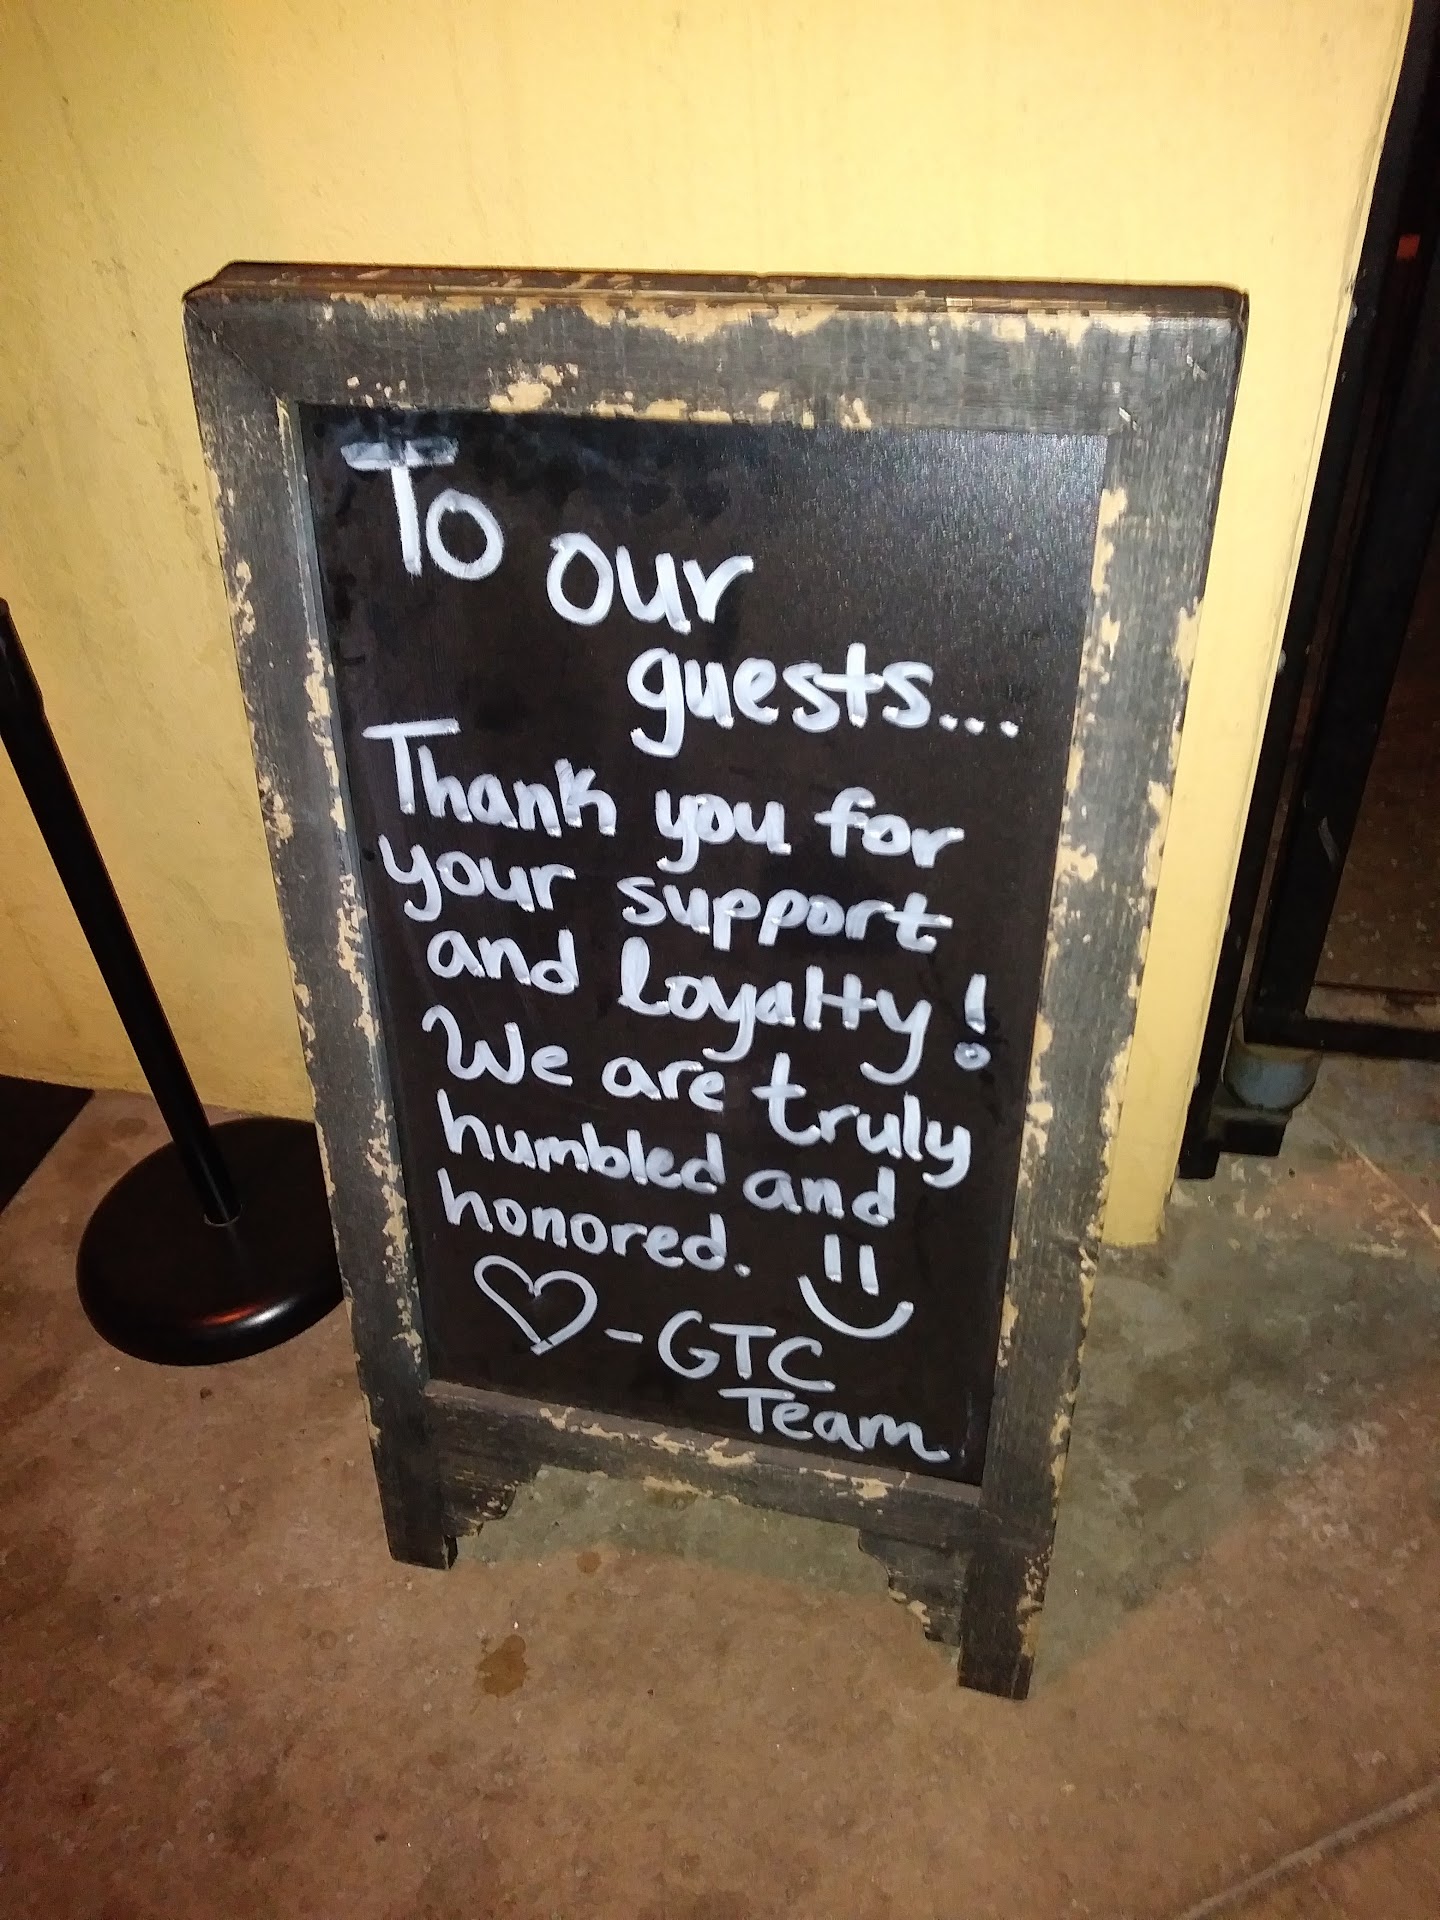 To our
guests...
Thank you for
your support
and loyalty!
We are truly
humbled and
honored.
- GTC
Team